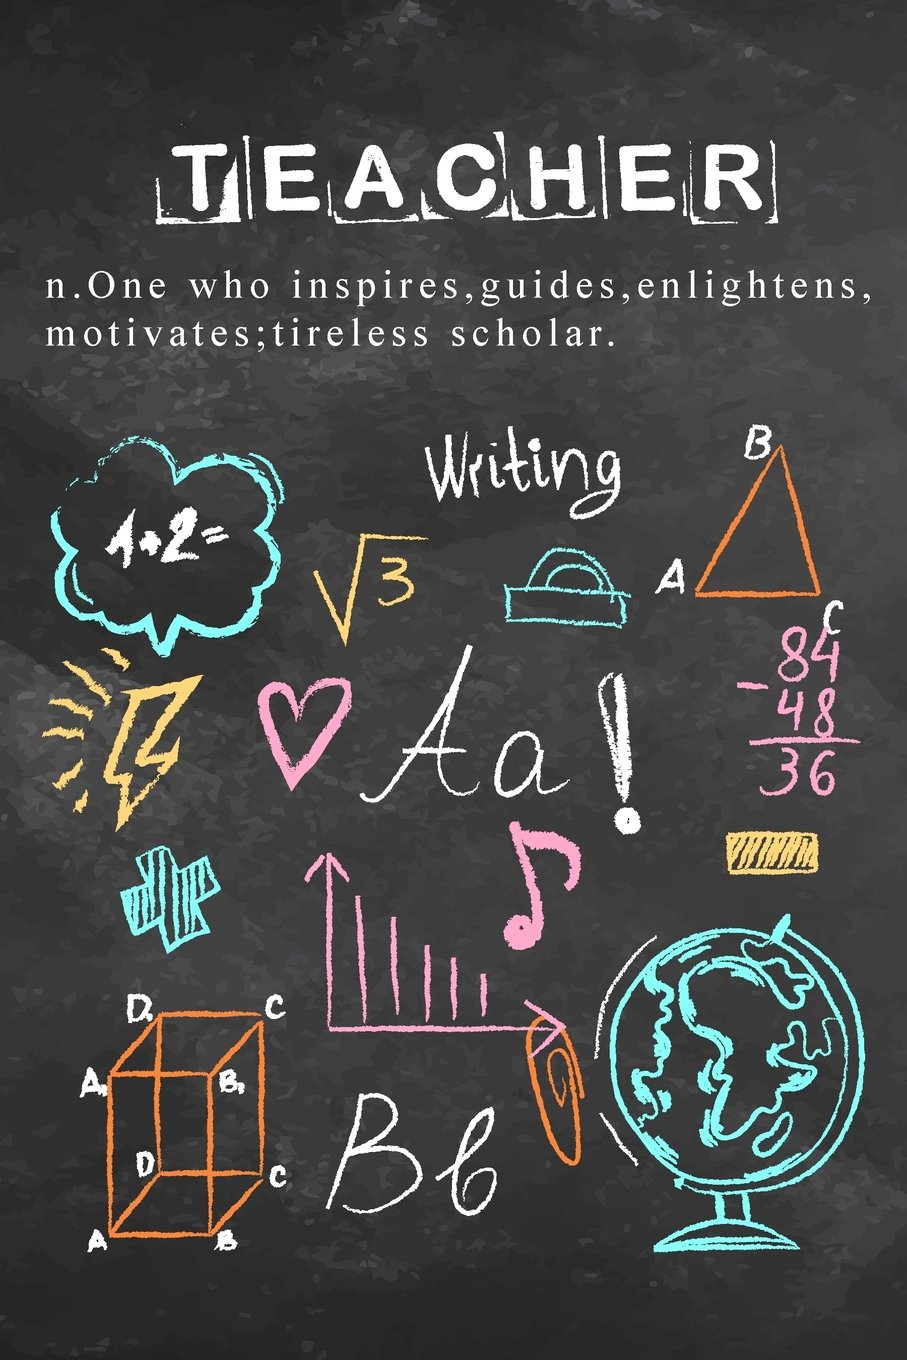 TEACHER
n.One who inspires,guides,enlightens,
motivates;tireless scholar.
Writing
B
1+2=
√3
A
C
84
- 48
36
Aa!
D₁ C
A₁ B₁
D C
A B
Bb